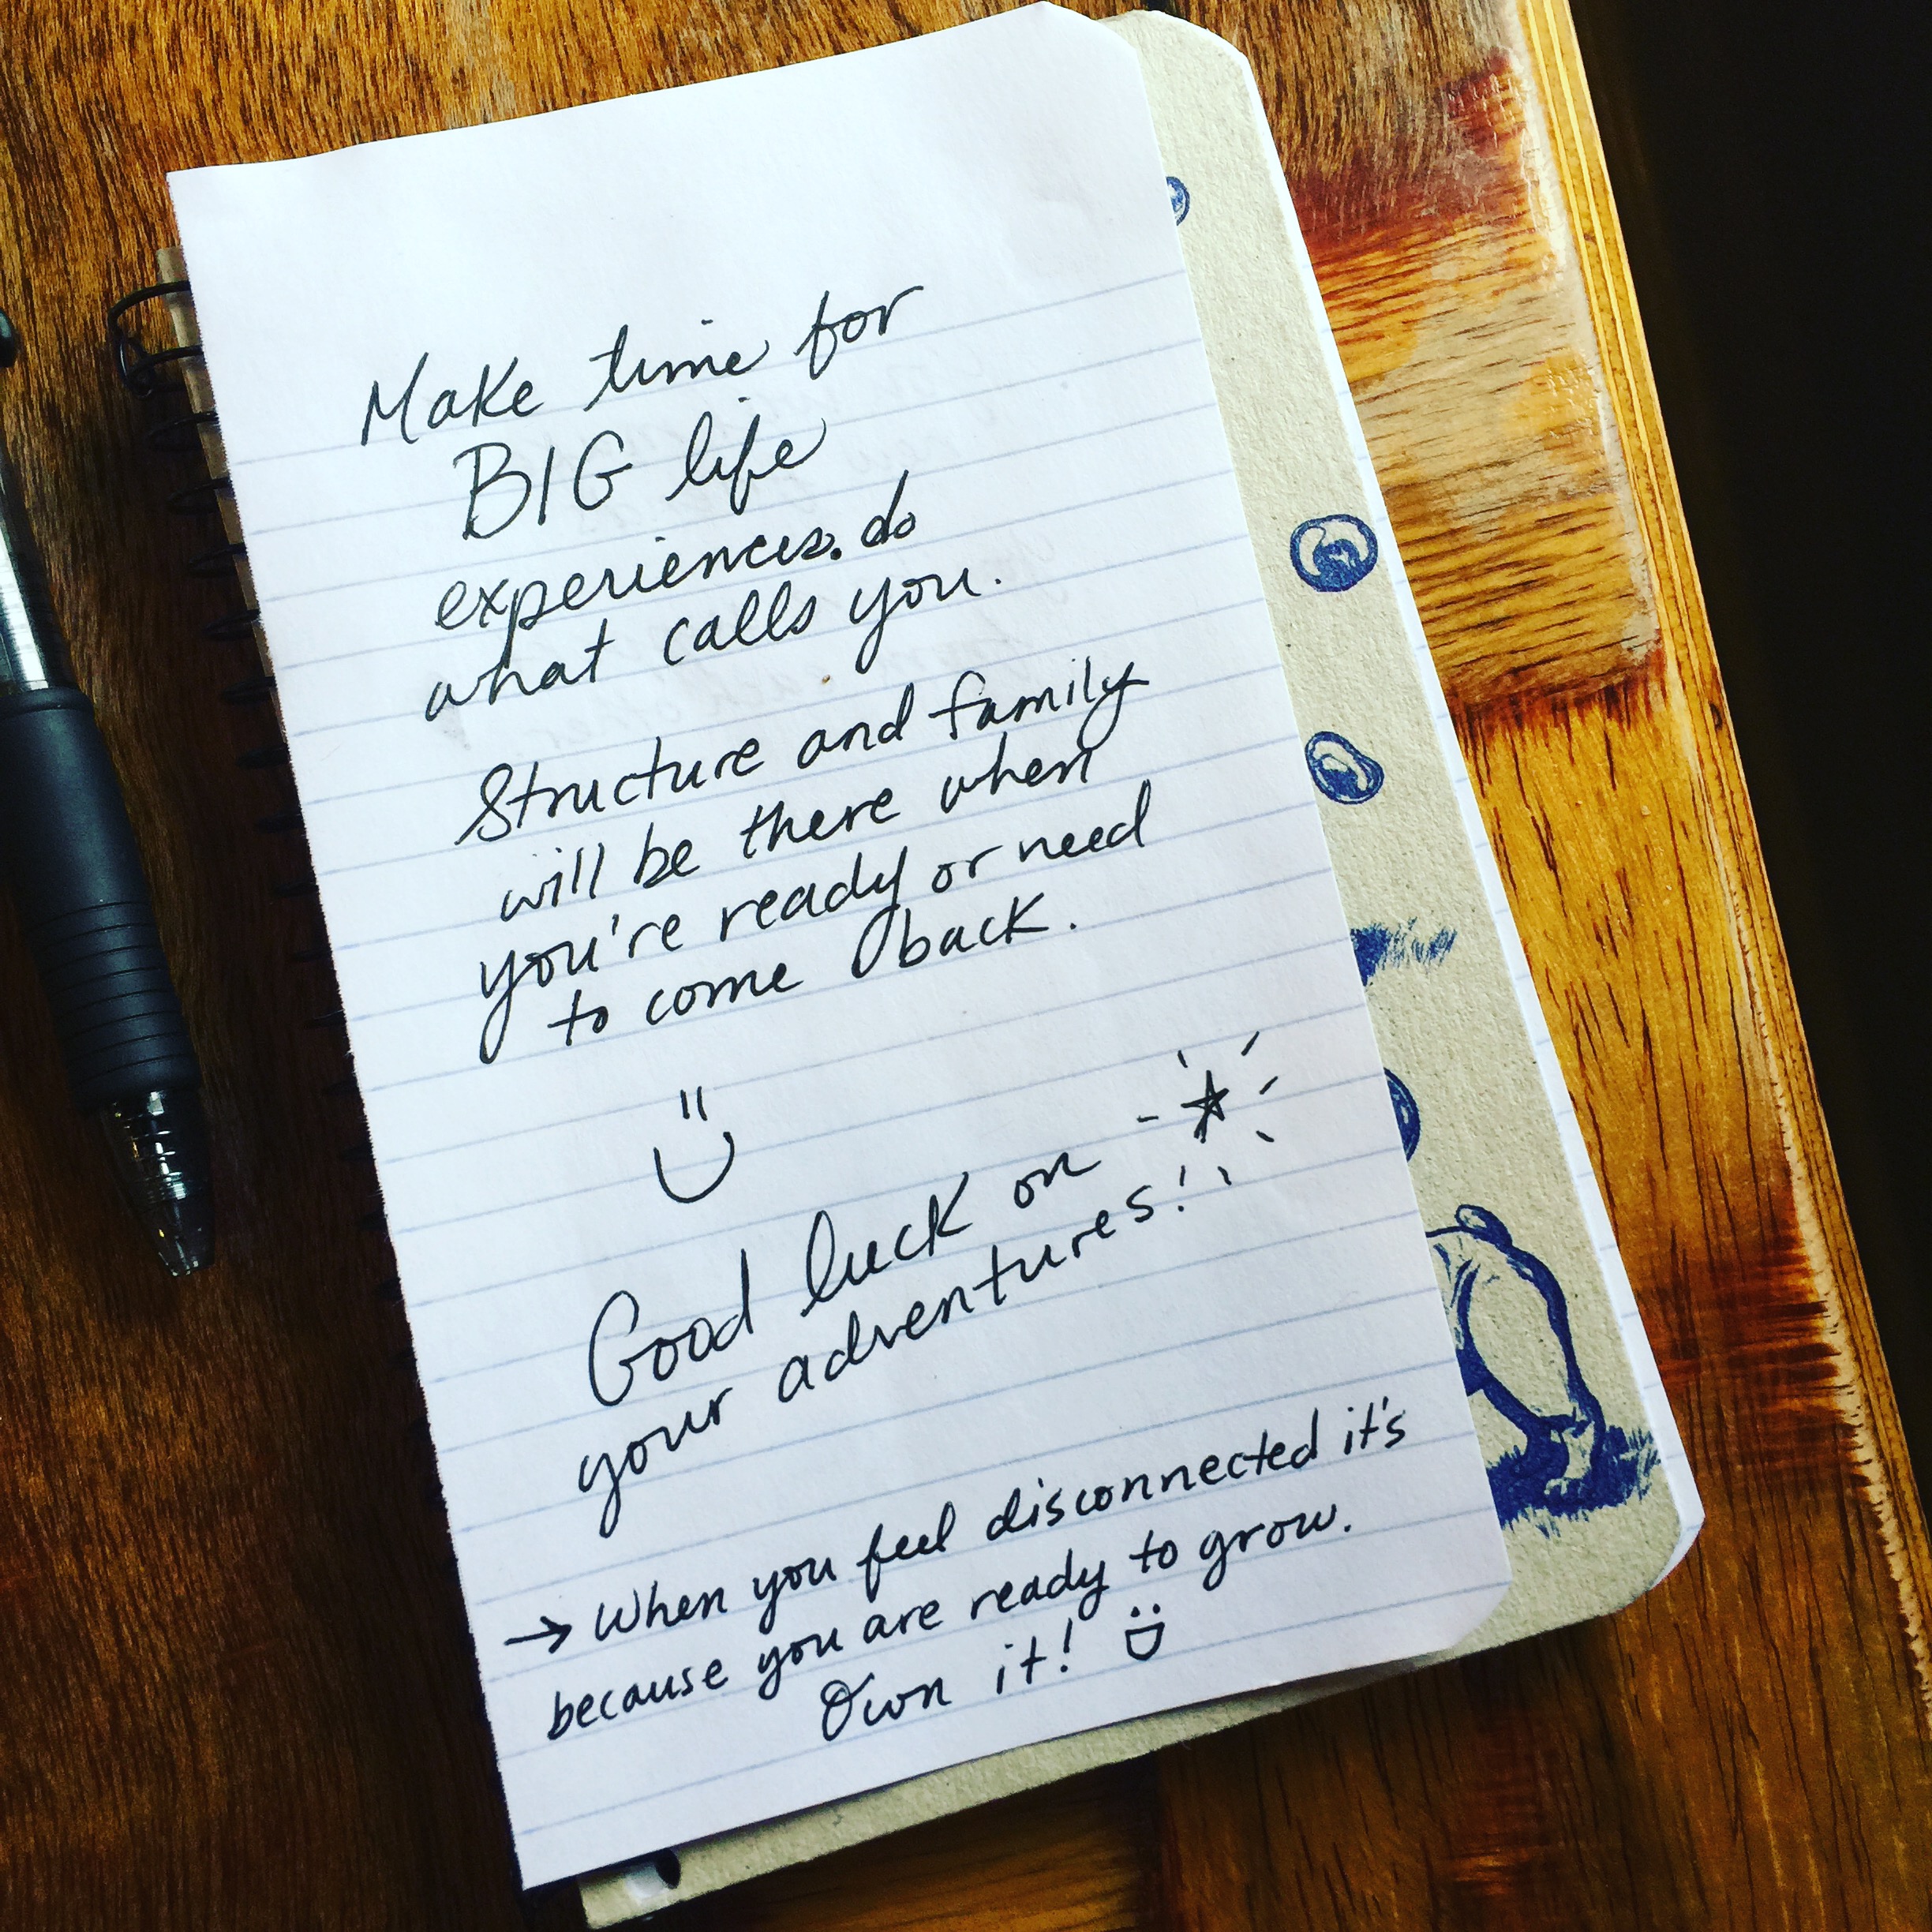 Make time for
BIG life
experiences. do
what calls you.
Structure and family
will be there when
you're ready or need
to come back.
Good luck on
your adventures!
→ When you feel disconnected it's
because you are ready to grow.
Own it!